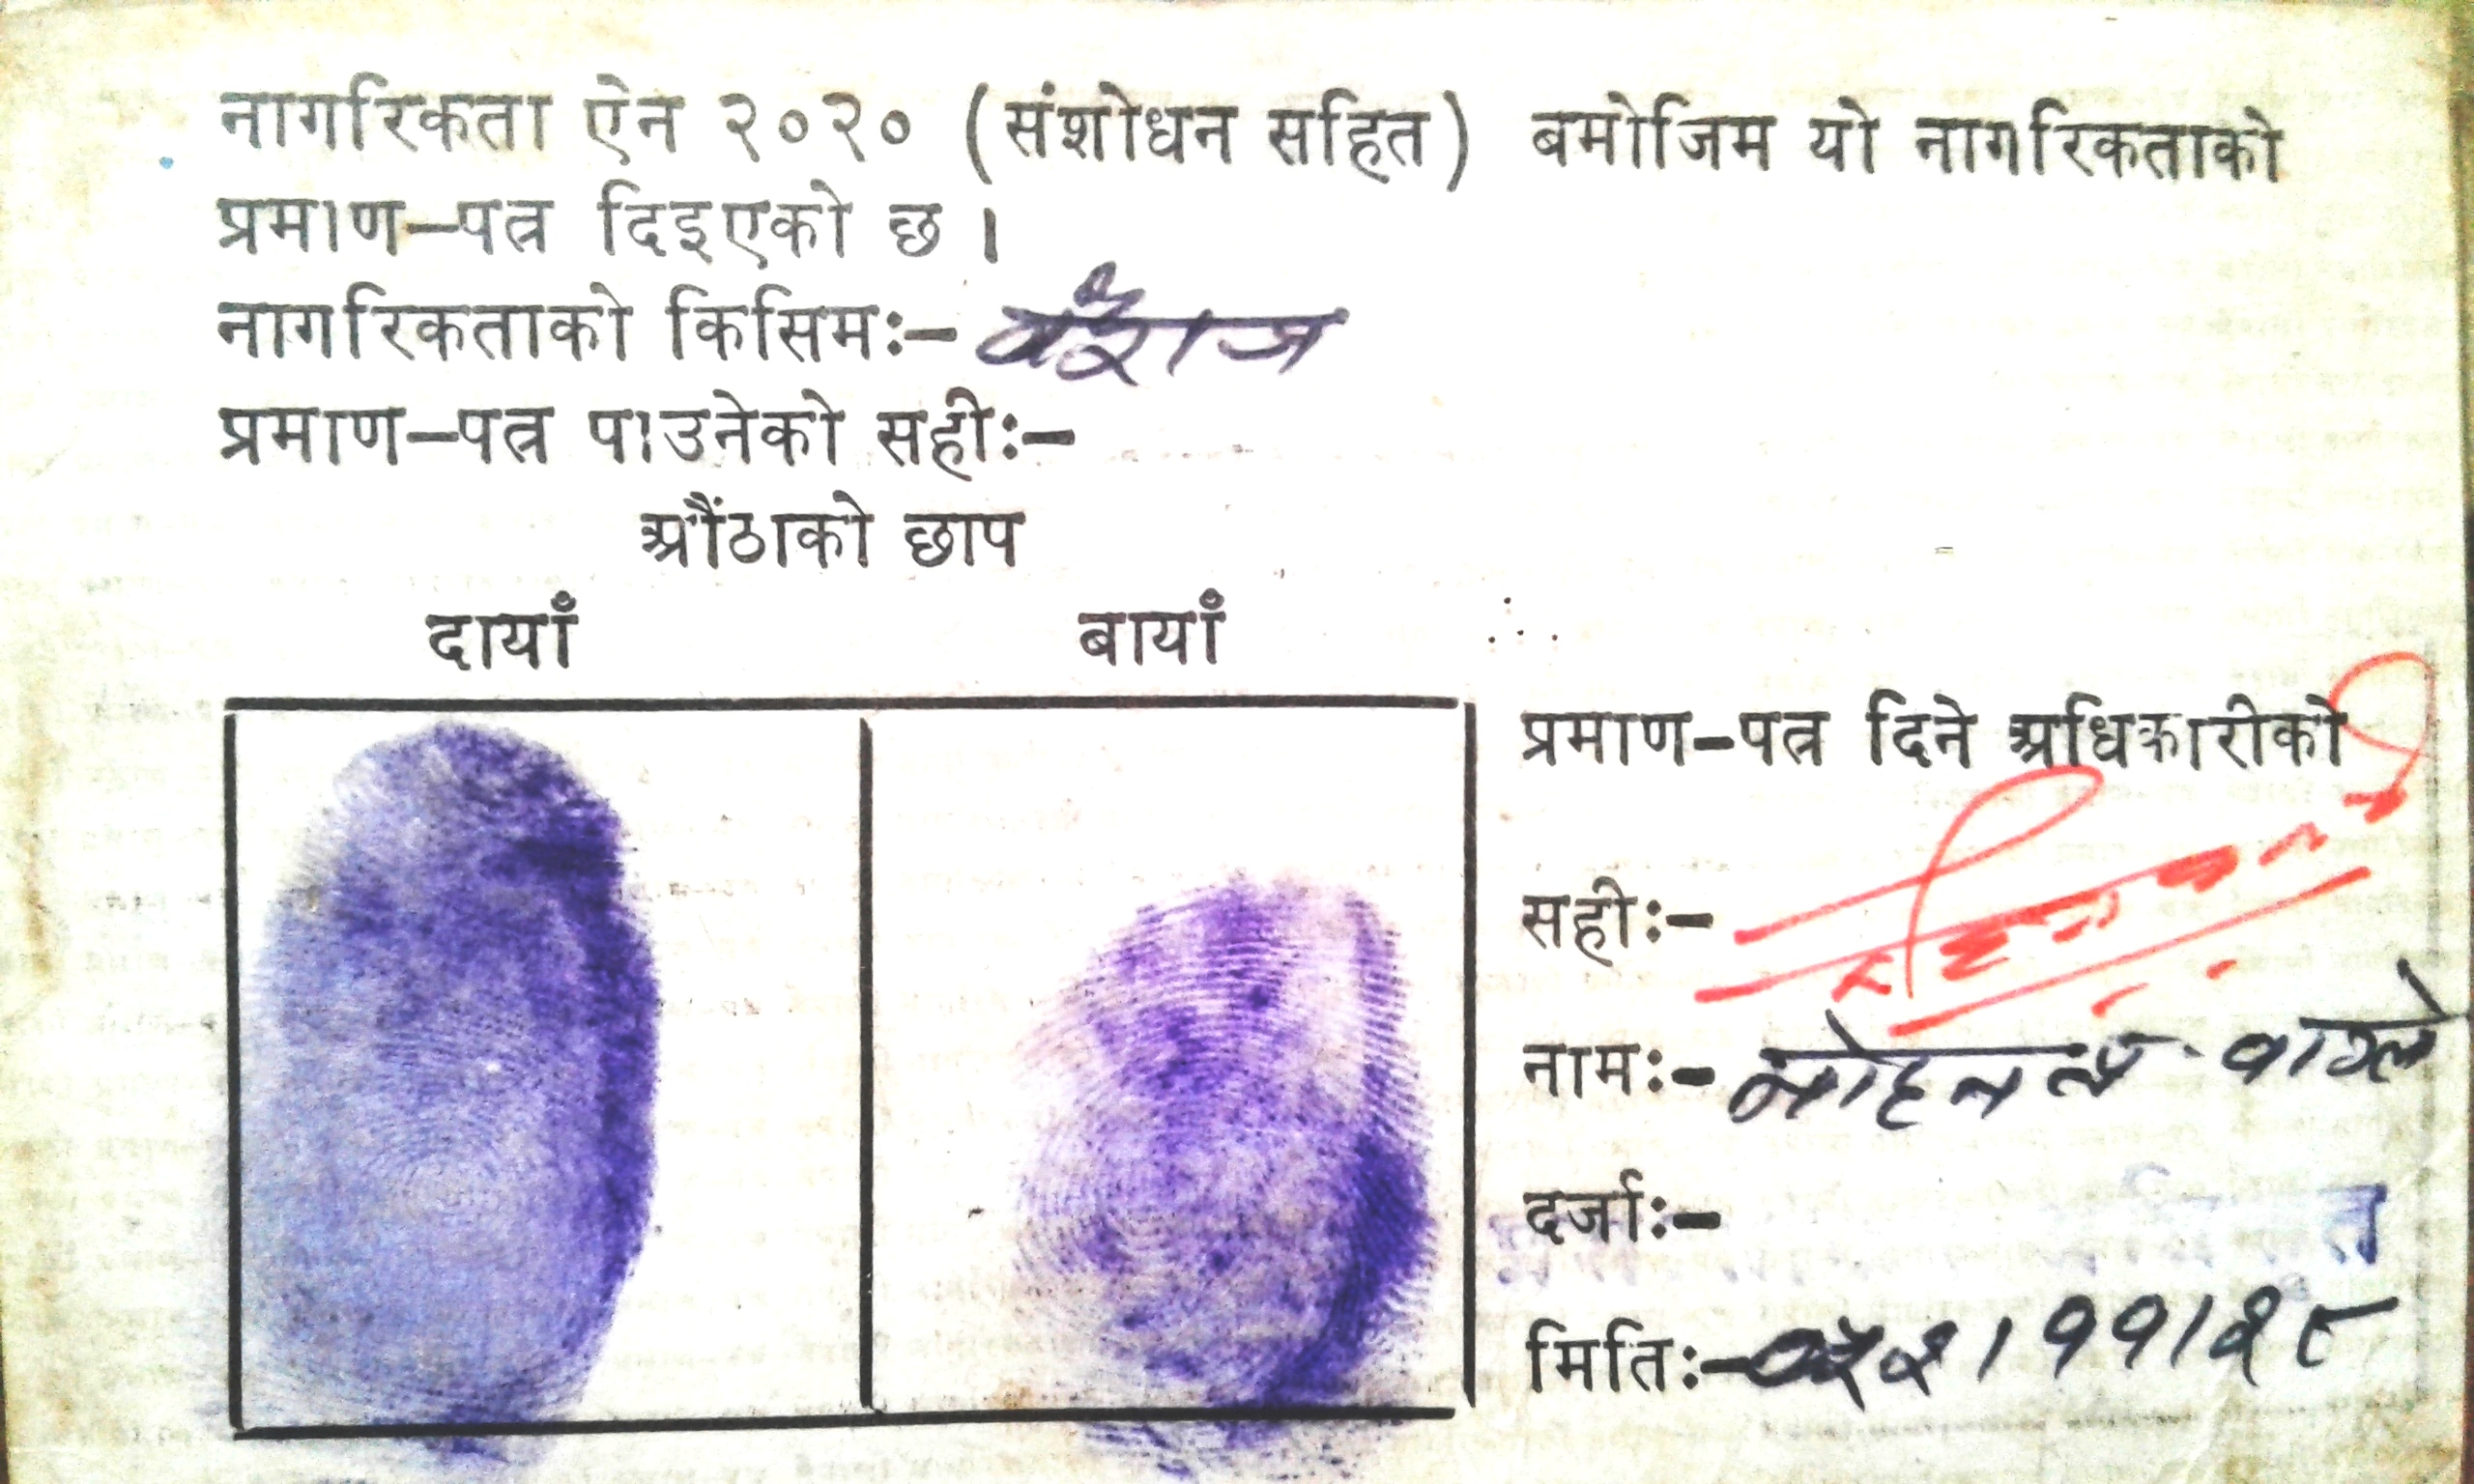 नागरिकता ऐन २०२० (संशोधन सहित) बमोजिम यो नागरिकताको
प्रमाण-पत्र दिइएको छ ।
नागरिकताको किसिमः- वंशज
प्रमाण-पत्र पाउनेको सहीः-
औंठाको छाप
दायाँ बायाँ
प्रमाण-पत्र दिने अधिकारीको
सहीः-
नामः- मोहन वाग्ले
दर्जाः-
मितिः-